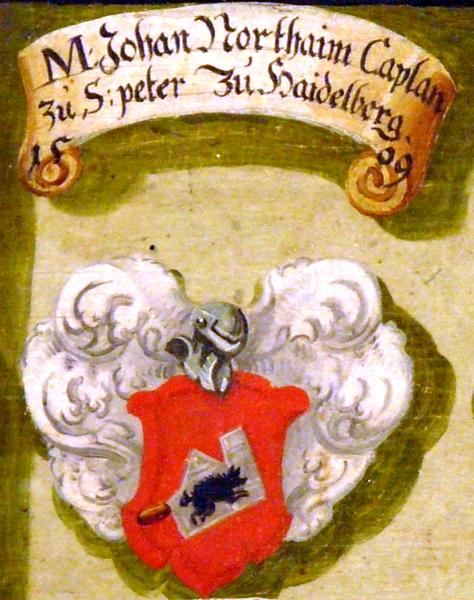 M. Johan Northaim Caplan
zu S. peter Zu Haidelberg.
15 09